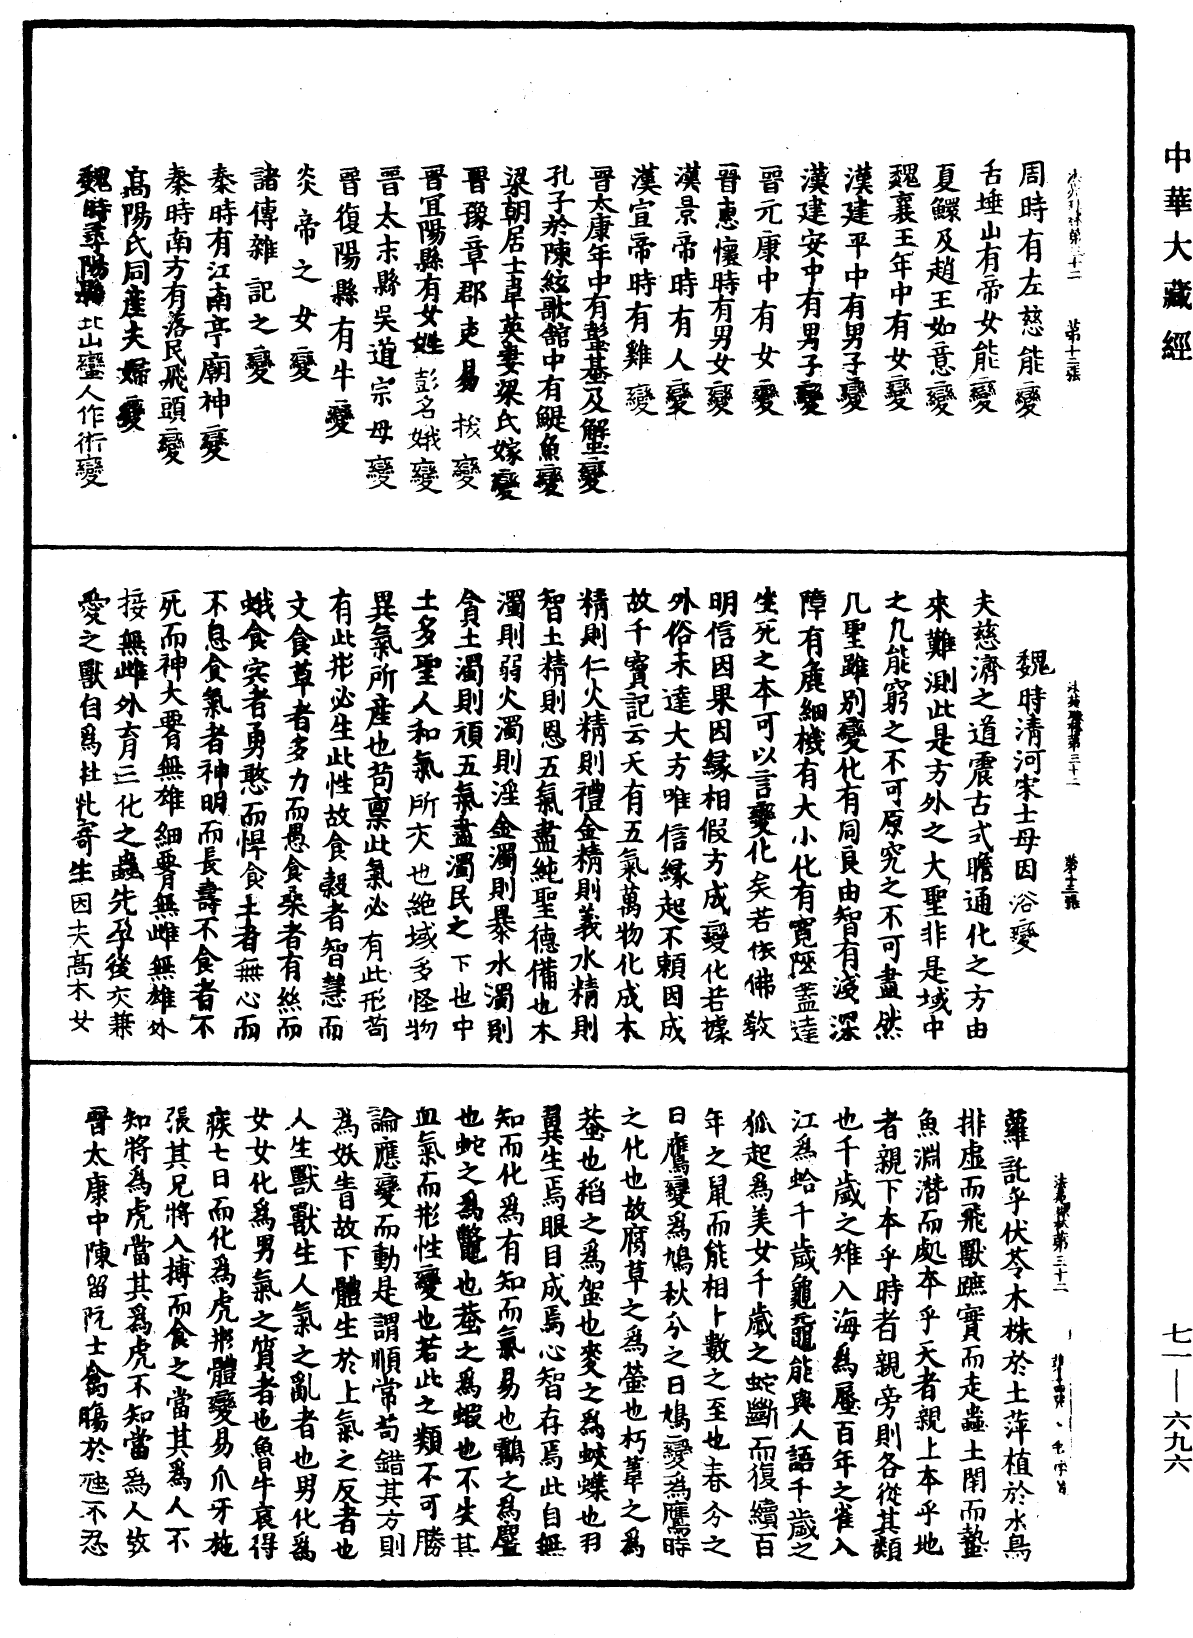 中華大藏經
七一—六九六
周時有左慈能變
舌埵山有帝女能變
夏鯀及趙王如意變
魏襄王年中有女變
漢建平中有男子變
漢建安中有男子變
晉元康中有女變
晉惠懷時有男女變
漢景帝時有人變
漢宣帝時有雞變
晉太康年中有蟚蜞及蟹變
孔子於陳絃歌館中有鯷魚變
梁朝居士韋英妻梁氏嫁變
晉豫章郡吏易拔變
晉宜陽縣有女姓彭名娥變
晉太末縣吳道宗母變
晉復陽縣有牛變
炎帝之女變
諸傳雜記之變
秦時有江南亭廟神變
秦時南方有落民飛頭變
高陽氏同產夫婦變
魏時尋陽縣北山蠻人作術變
第三十二
魏時清河宋士母因浴變
夫慈濟之道震古式瞻通化之方由
來難測此是方外之大聖非是域中
之凡能窮之不可原究之不可盡然
凡聖雖別變化有同良由智有淺深
障有麁細機有大小化有寬陿盖達
生死之本可以言變化矣若依佛教
明信因果因緣相假方成變化若據
外俗未達大方唯信緣起不賴因成
故千寶記云天有五氣萬物化成木
精則仁火精則禮金精則義水精則
智土精則恩五氣盡純聖德備也木
濁則弱火濁則淫金濁則暴水濁則
貪土濁則頑五氣盡濁民之下也中
土多聖人和氣所交也絕域多怪物
異氣所產也苟稟此氣必有此形苟
有此形必生此性故食穀者智慧而
文食草者多力而愚食桑者有絲而
蛾食宍者勇憨而悍食土者無心而
不息食氣者神明而長壽不食者不
死而神大䐴無雄細䐴無雌無雄外
接無雌外育三化之蟲先孕後交兼
愛之獸自爲牡牝寄生因夫高木女
第三十二
蘿託乎伏苓木株於土萍植於水鳥
排虛而飛獸蹠實而走蟲土閉而蟄
魚淵潛而處本乎天者親上本乎地
者親下本乎時者親旁則各從其類
也千歲之雉入海爲蜃百年之雀入
江爲蛤千歲龜黿能與人語千歲之
狐起爲美女千歲之蛇斷而復續百
年之鼠而能相卜數之至也春分之
日鷹變爲鳩秋分之日鳩變爲鷹時
之化也故腐草之爲螢也朽葦之爲
蛬也稻之爲䖪也麥之爲蛺蝶也羽
翼生焉眼目成焉心智存焉此自無
知而化爲有知而氣易也鸖之爲麞
也蛇之爲鼈也蛬之爲蝦也不失其
血氣而形性變也若此之類不可勝
論應變而動是謂順常苟錯其方則
爲妖眚故下體生於上氣之反者也
人生獸獸生人氣之亂者也男化爲
女女化爲男氣之貿者也魯牛哀得
疾七日而化爲虎形體變易爪牙施
張其兄將入搏而食之當其爲人不
知將爲虎當其爲虎不知當爲人故
晉太康中陳留阮士禽傷於虺不忍